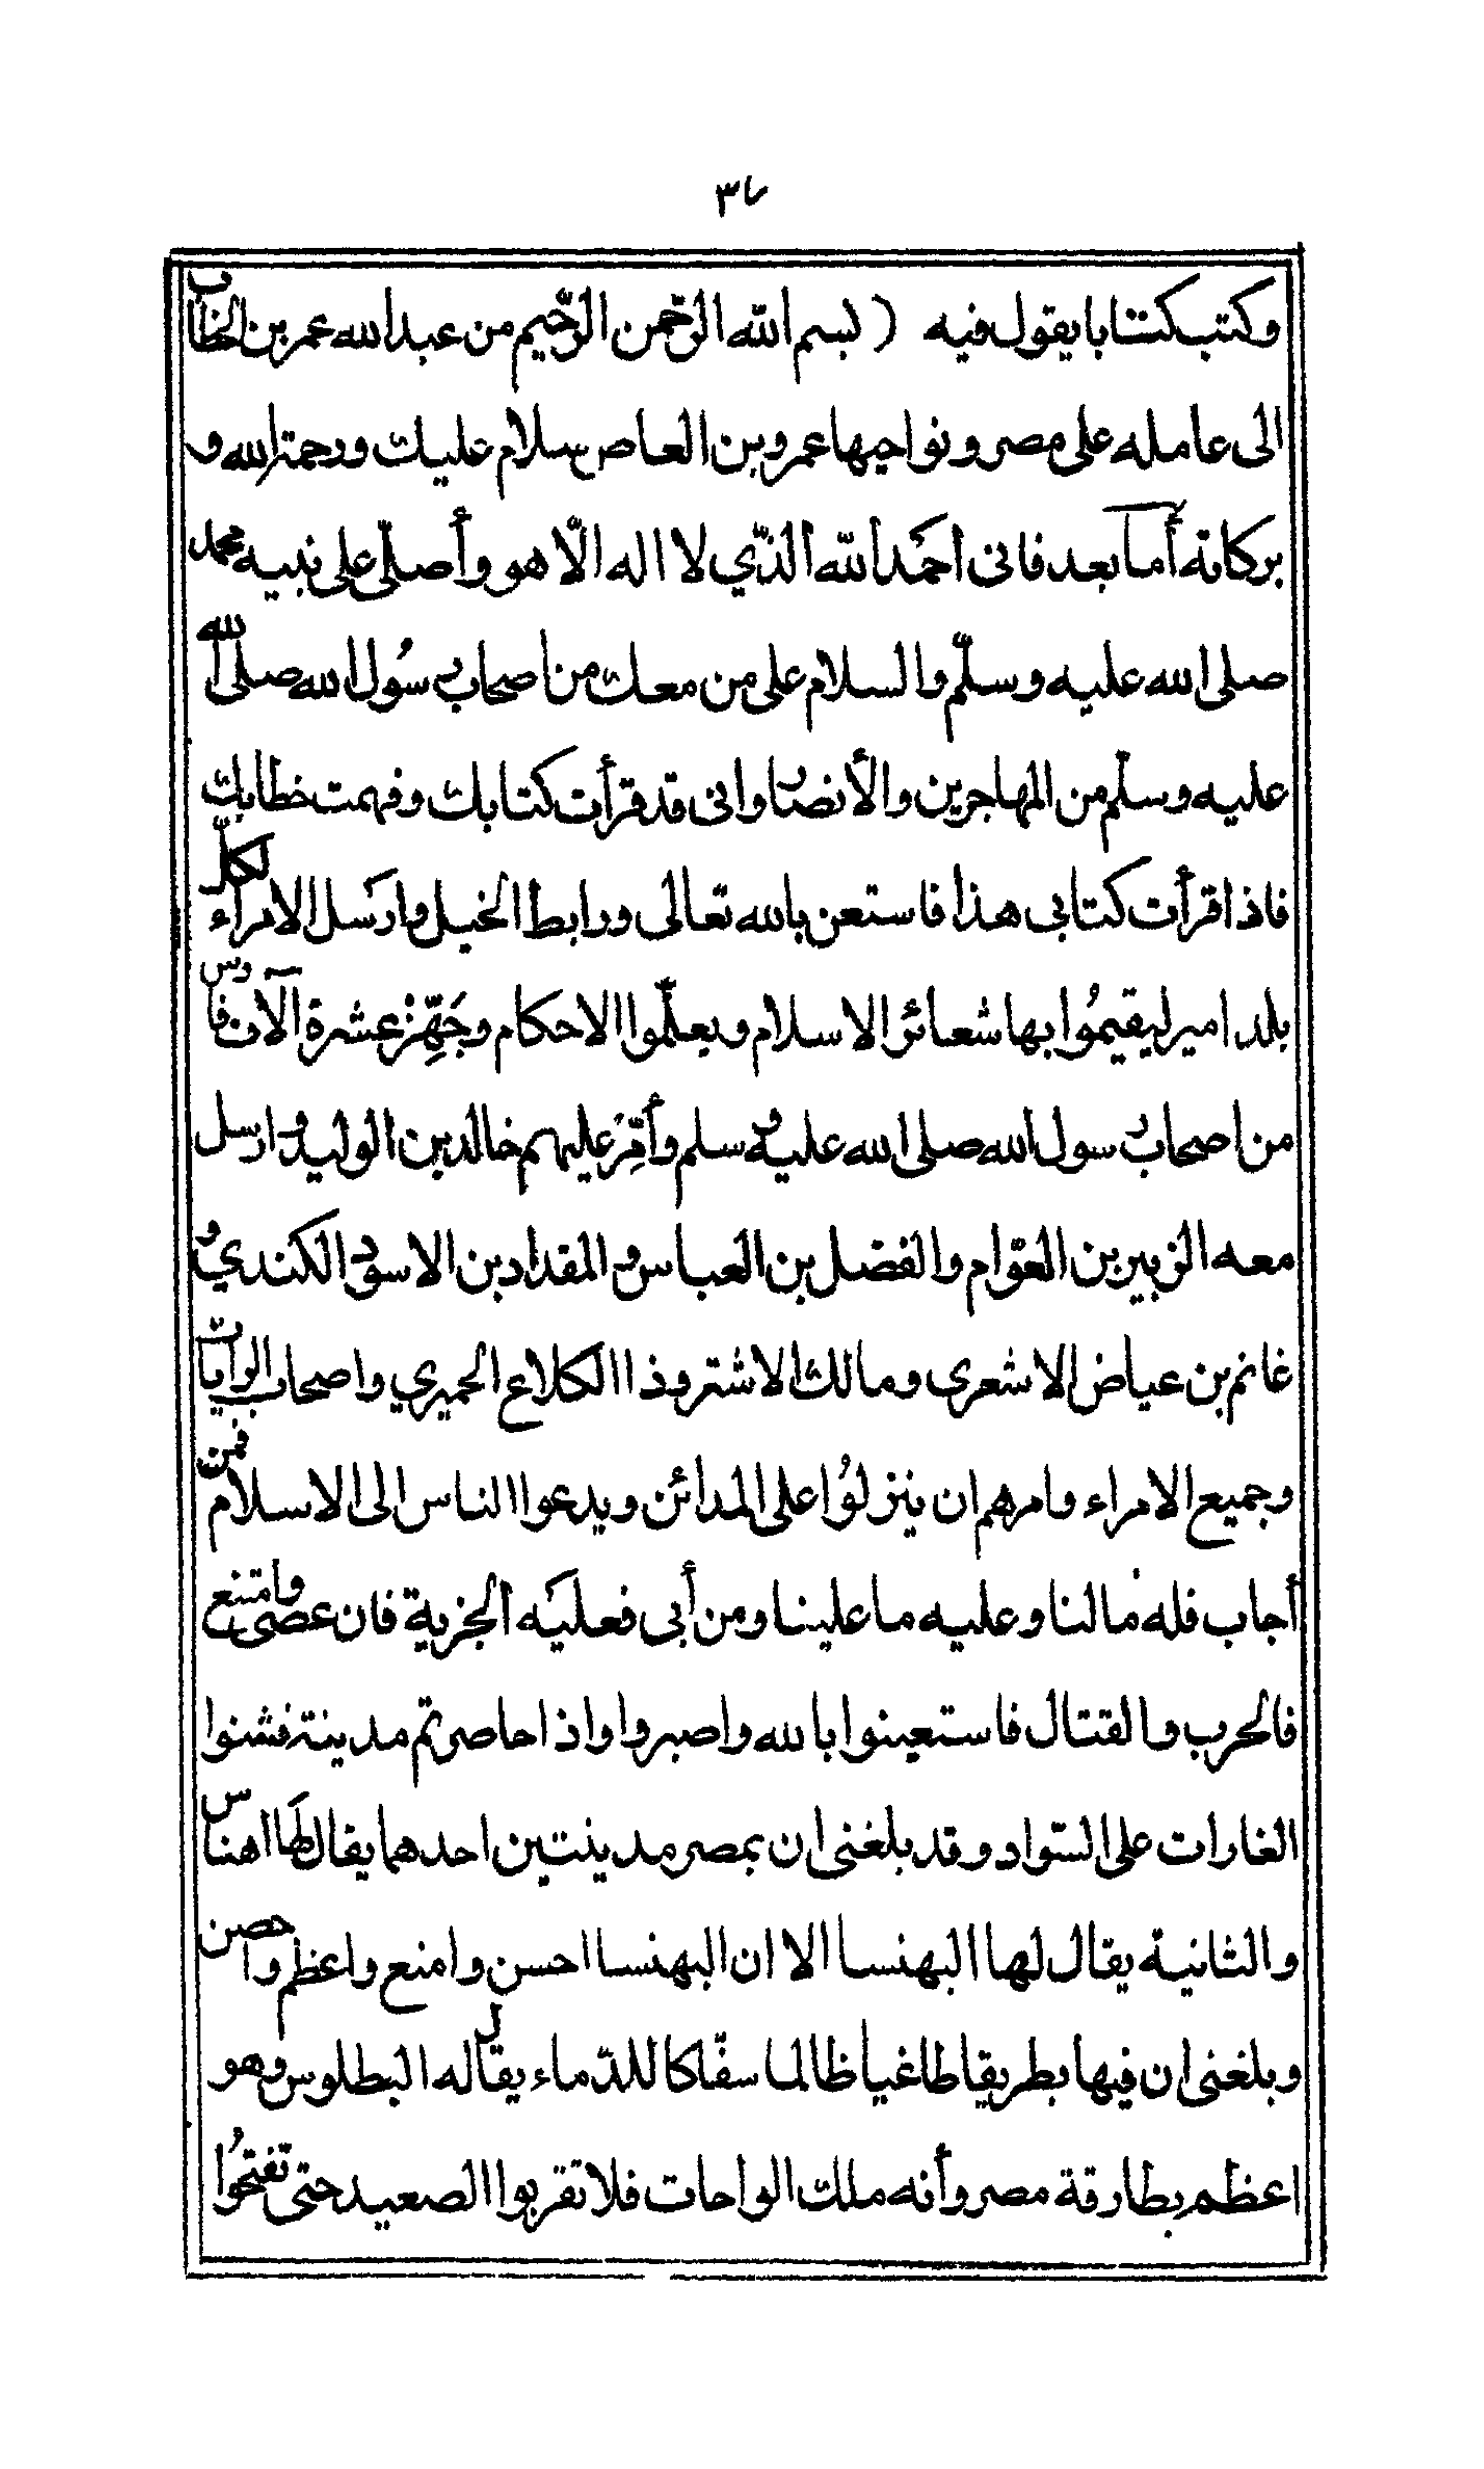 ٣٧
وكتب كتابا يقول فيه ( بسم الله الرّحمن الرّحيم من عبد الله عمر بن الخطاب
الى عامله على مصر ونواحيها عمرو بن العاص سلام عليك ورحمة الله و
بركاته أما بعد فانى احمَد الله الذّي لا اله الّا هو وأصلّي على نبيه محمد
صلى الله عليه وسلّم والسلام على من معك من اصحاب رسُول الله صلى الله
عليه وسلّم من المهاجرين والأنصار وانى قد قرأت كتابك وفهمت خطابك
فاذا قرأت كتابى هذا فاستعن بالله تعالى ورابط الخيل وارسَل الامراء لكلّ
بلد امير ليقيمُوا بها شعائر الاسلام ويعلّموا الاحكام وجَهِّزْ عشرة آلاف فارس
من اصحاب رسول الله صلى الله عليه وسلم وأمِّرْ عليهم خالد بن الوليد وارسل
معه الزبير بن العوّام والفضل بن العباس والمقداد بن الاسود الكندي و
غانم بن عياض الاشعرى ومالك الاشتر وذا الكلاع الحميري واصحاب الرايات
وجميع الامراء وامرهم ان ينزلوُا على المدائن ويدعوا الناس الى الاسلام فمن
أجاب فله ما لنا وعليه ما علينا ومن أبى فعليَه الجزية فان عصى وامتنع
فالحرب والقتال فاستعينوا بالله واصبروا واذا حاصرتم مدينة فشنوا
الغارات على السّواد وقد بلغنى ان بمصر مدينتين احدهما يقال لهَا اهناس
والثانية يقال لها البهنسا الا ان البهنسا احسن وامنع واعظم واحصن
وبلغنى ان فيها بطريقا طاغيا ظالما سفّاكا للدّماء يقال له البطلوس وهو
اعظم بطارقة مصر وأنه ملك الواحات فلا تقربوا الصعيد حتى تفتحُوا